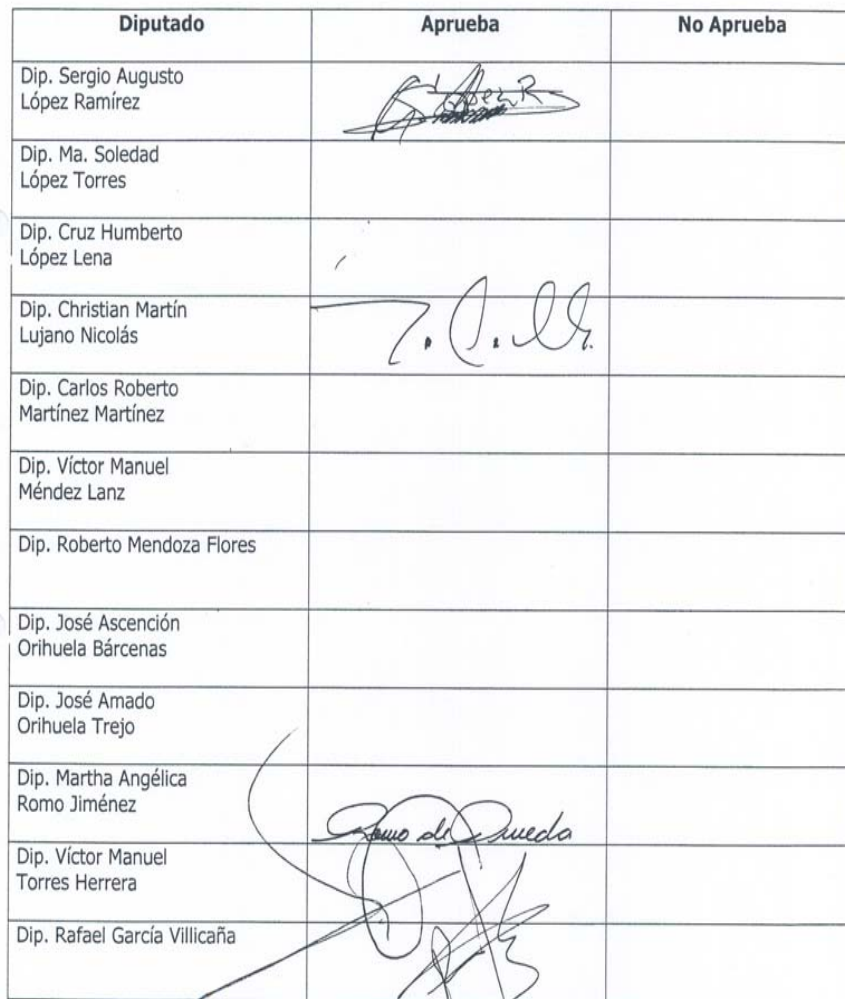 Diputado Aprueba No Aprueba
Dip. Sergio Augusto
López Ramírez
Dip. Ma. Soledad
López Torres
Dip. Cruz Humberto
López Lena
Dip. Christian Martín
Lujano Nicolás
Dip. Carlos Roberto
Martínez Martínez
Dip. Víctor Manuel
Méndez Lanz
Dip. Roberto Mendoza Flores
Dip. José Ascención
Orihuela Bárcenas
Dip. José Amado
Orihuela Trejo
Dip. Martha Angélica
Romo Jiménez
Romo de
Dip. Víctor Manuel
Torres Herrera
Dip. Rafael García Villicaña